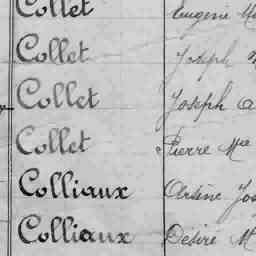 Collet Eugène
Collet Joseph
Collet Joseph
Collet Pierre Mie
Colliaux Arsène
Colliaux Désiré M